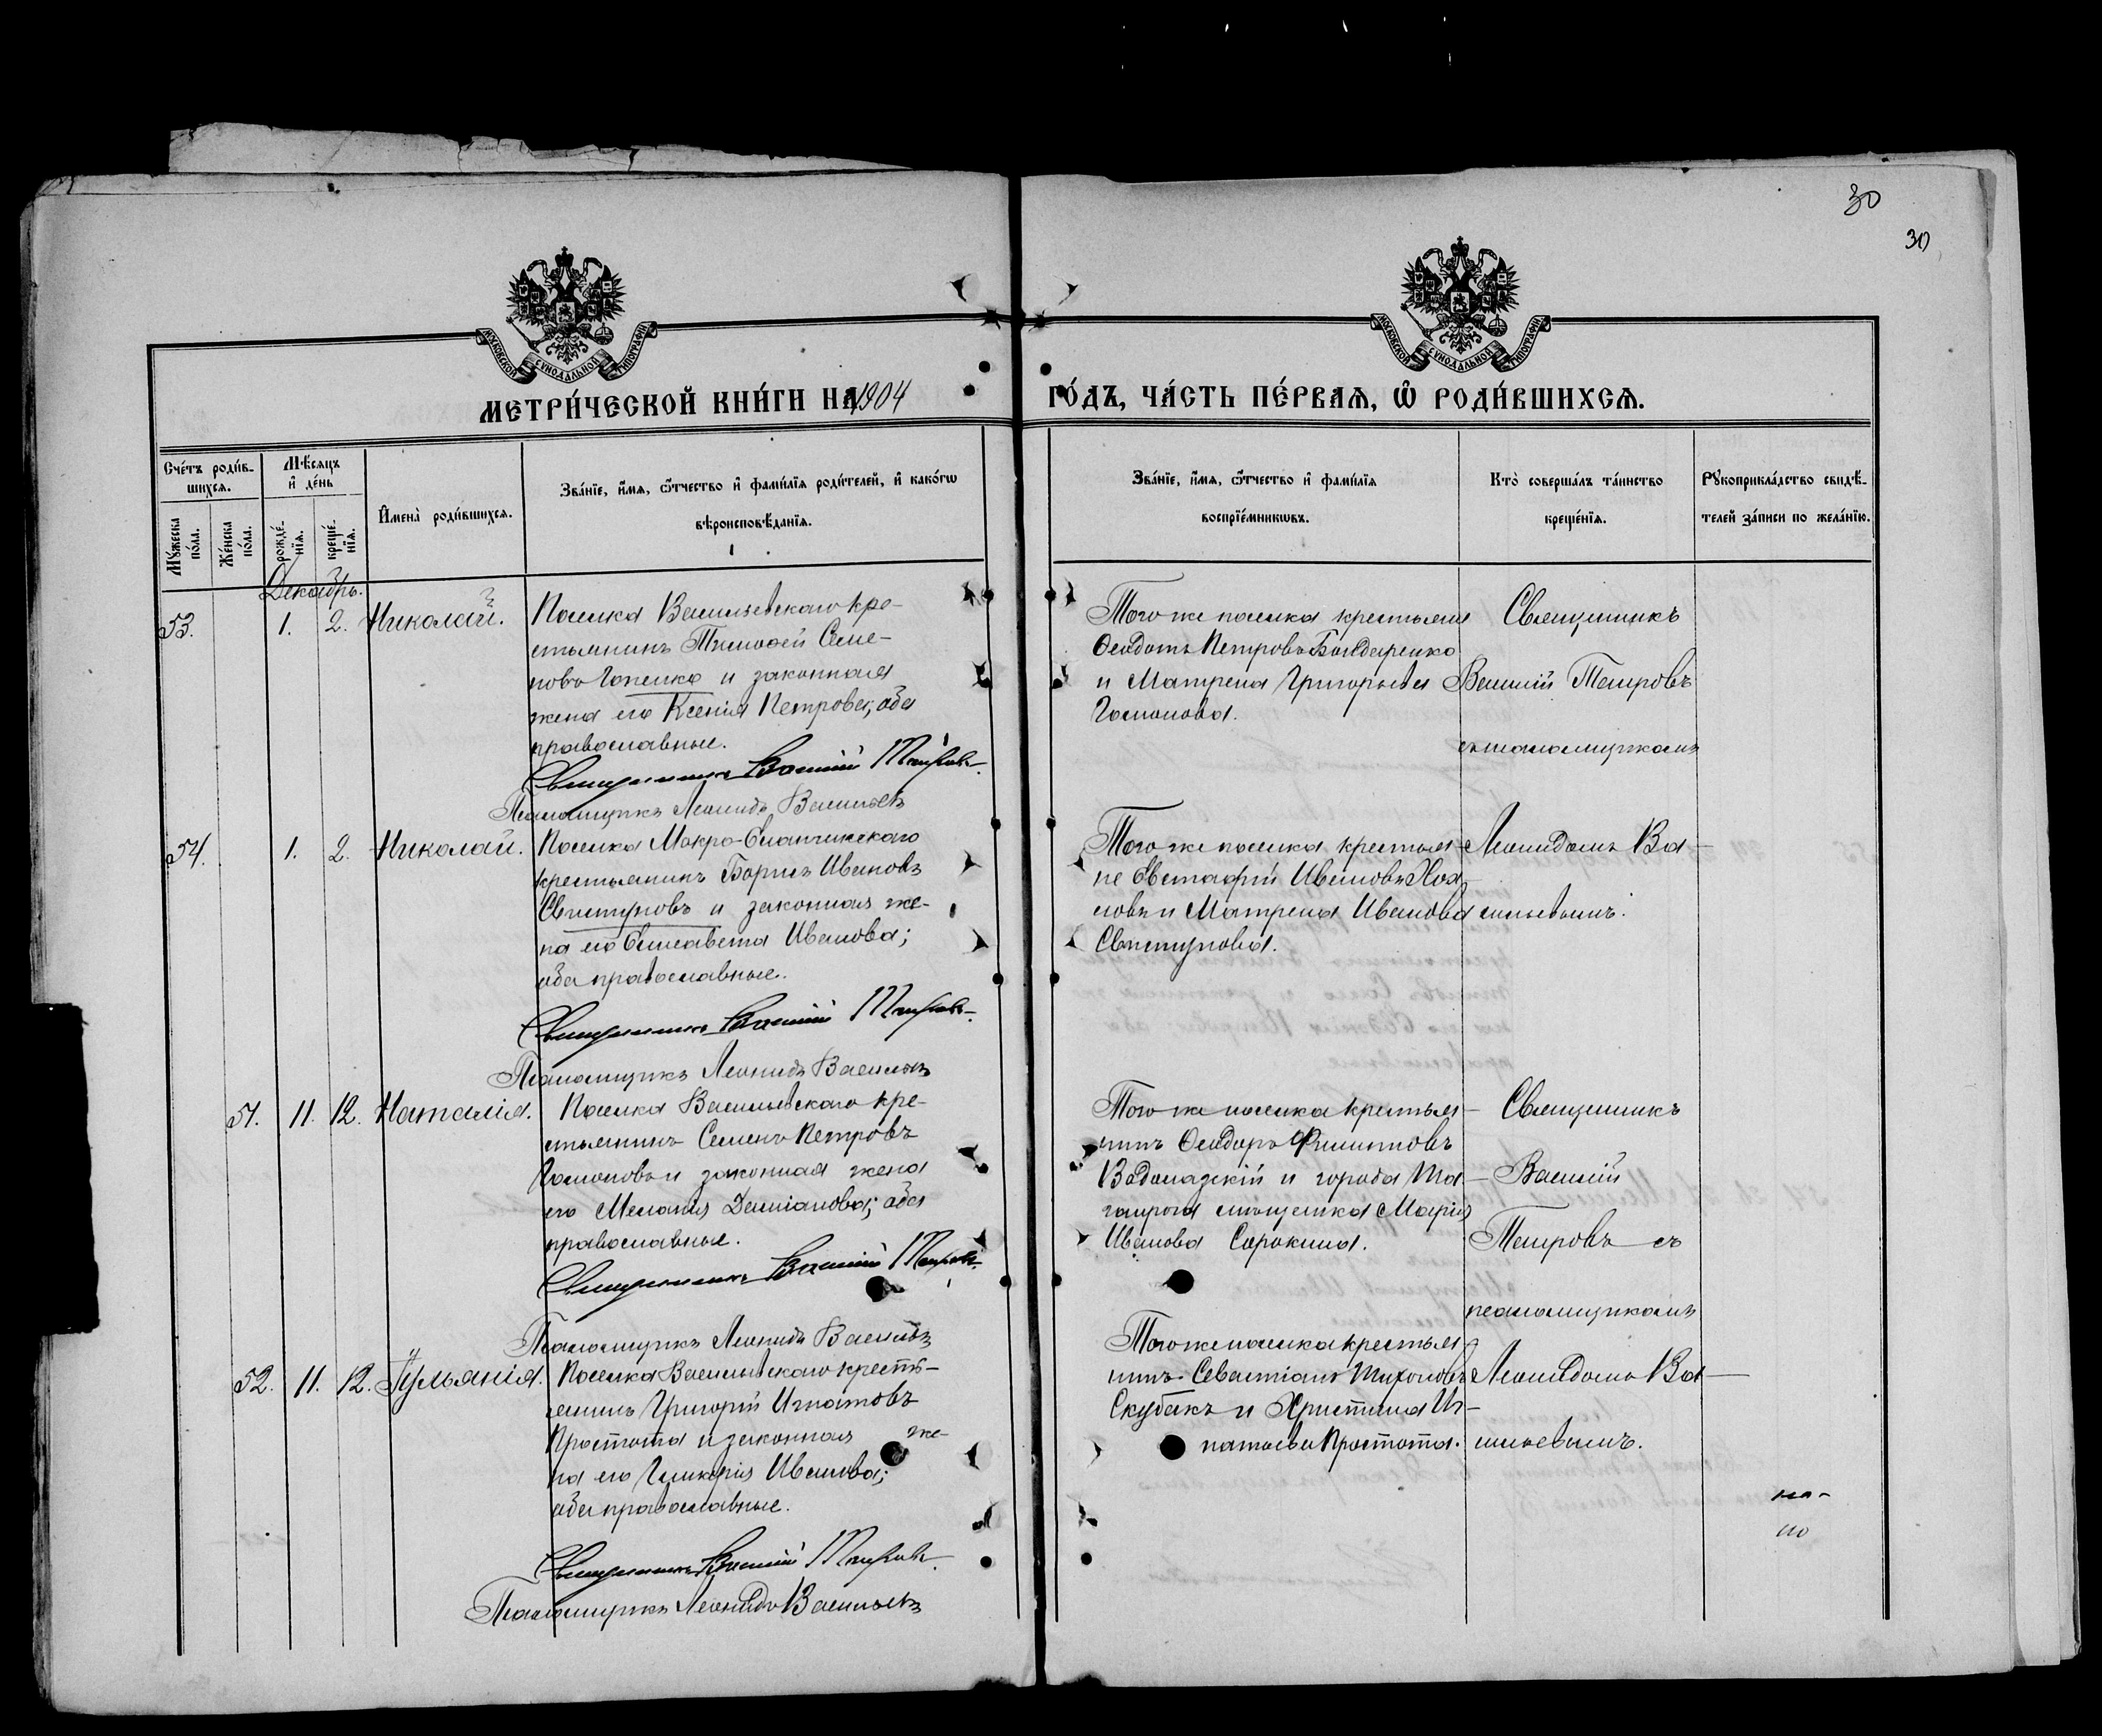 30
30
МОСКОВСКОЙ СУНОДАЛЬНОЙ ТИПОГРАФІИ
МОСКОВСКОЙ СУНОДАЛЬНОЙ ТИПОГРАФІИ
МЕТРИ́ЧЕСКОЙ КНИ́ГИ НА 1904
ГО́ДЪ, ЧА́СТЬ ПЕ́РВАѦ, Ѽ РОДИ́ВШИХСѦ.
Сче́тъ роди́в-
шихсѧ.
Мꙋ́жеска по́ла.
Же́нска по́ла.
Мѣ́сѧцъ
и҆ де́нь
рожде́-
нїѧ.
креще́-
нїѧ.
И҆мена̀ роди́вшихсѧ.
Зва́нїе, и҆́мѧ, ѻ҆́тчество и҆ фами́лїѧ роди́телей, и҆ како́гѡ
вѣроисповѣ́данїѧ.
Зва́нїе, и҆́мѧ, ѻ҆́тчество и҆ фами́лїѧ
воспрїе́мникѡвъ.
Кто̀ соверша́лъ та́инство
креще́нїѧ.
Рꙋкоприкла́дство свидѣ́-
телей за́писи по жела́нїю.
Декабрь.
53. 1. 2. Николай.
Поселка Васильевскаго кре-
стьянинъ Тимофей Семе-
новъ Гапенко и законная
жена его Ксенія Петрова; оба
православные.
Священникъ Василій Петровъ
Псаломщикъ Леонидъ Васильевъ
Того же поселка крестьяне
Ѳеодотъ Петровъ Бондаренко
и Матрена Григорьева
Гамонова.
Священникъ
Василій Петровъ
съ псаломщикомъ
54. 1. 2. Николай.
Поселка Мокро-Еланчикскаго
крестьянинъ Борисъ Ивановъ
Свистуновъ и законная же-
на его Елисавета Иванова;
оба православные.
Священникъ Василій Петровъ
Псаломщикъ Леонидъ Васильевъ
Того же поселка крестья-
не Евстафій Ивановъ
и Матрена Иванова
Свистунова.
Леонидомъ Ва-
сильевымъ.
51. 11. 12. Наталія.
Поселка Васильевскаго кре-
стьянинъ Семенъ Петровъ
Гамоновъ и законная жена
его Меланія Даміанова; оба
православные.
Священникъ Василій Петровъ
Псаломщикъ Леонидъ Васильевъ
Того же поселка крестья-
нинъ Ѳеодоръ Филиповъ
Водолазскій и города Та-
ганрога мѣщанка Марія
Иванова Сорокина.
Священникъ
Василій
Петровъ съ
псаломщикомъ
52. 11. 12. Іуліанія.
Поселка Васильевскаго кресть-
янинъ Григорій Игнатовъ
Простота и законная же-
на его Гликерія Иванова;
оба православные.
Священникъ Василій Петровъ
Псаломщикъ Леонидъ Васильевъ
Того же поселка крестья-
нинъ Севастіанъ Тихоновъ
Скубакъ и Христина Иг-
натьева Простота.
Леонидомъ Ва-
сильевымъ.